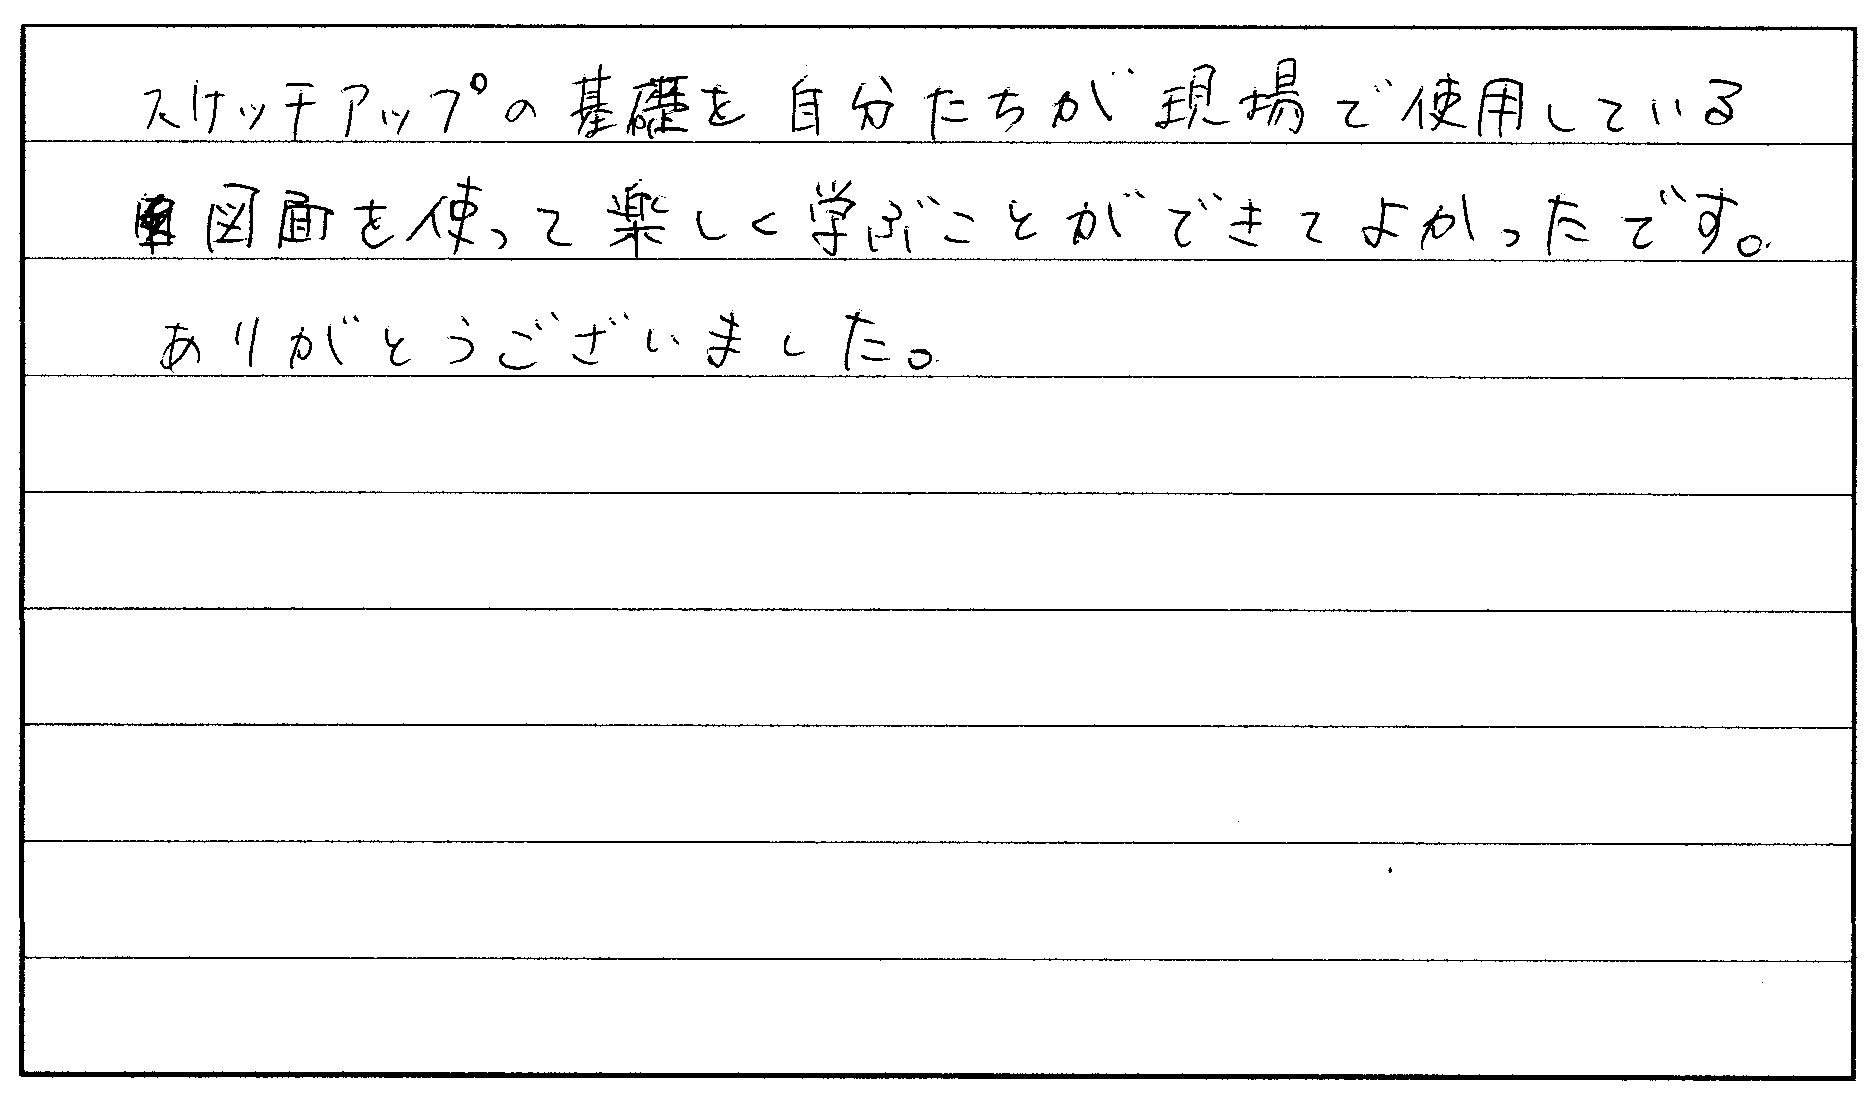 スケッチアップの基礎を自分たちが現場で使用している
図面を使って楽しく学ぶことができてよかったです。
ありがとうございました。